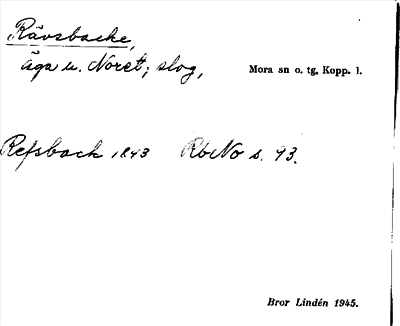 Rävsbacke,
äga u. Noret; slog,
Mora sn o. tg, Kopp. l.
Refsback 1843 RbNo s. 93.
Bror Lindén 1945.